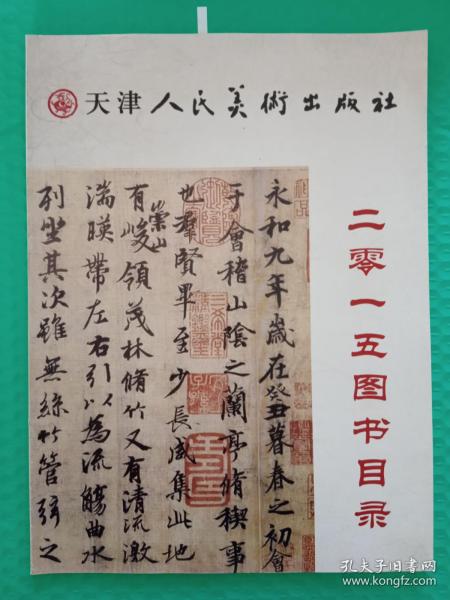 天津人民美術出版社
二零一五图书目录
永和九年歲在癸丑暮春之初會
于會稽山陰之蘭亭脩稧事
也羣賢畢至少長咸集此地
有崇山峻領茂林脩竹又有清流激
湍暎帶左右引以為流觴曲水
列坐其次雖無絲竹管弦之
孔夫子旧书网
book.kongfz.com